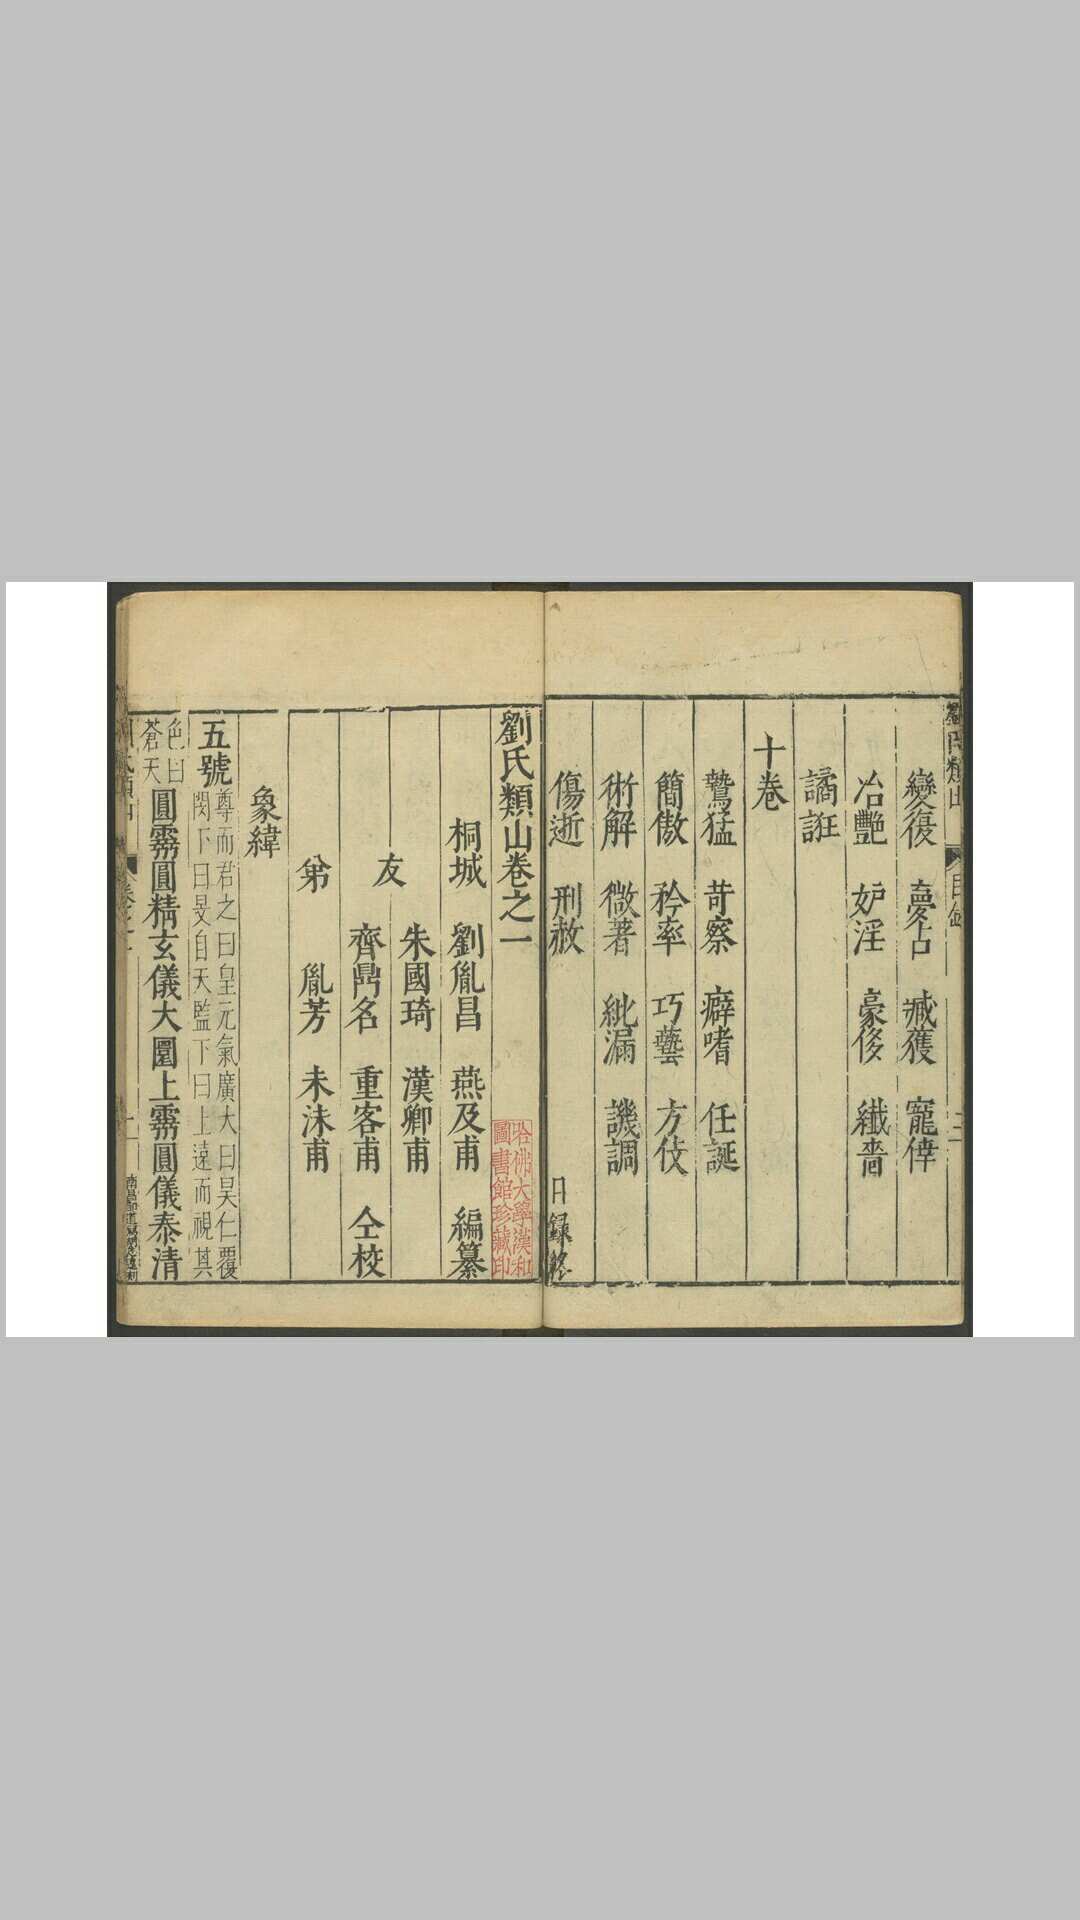 變復 夢占 臧獲 寵倖
冶艷 妒淫 豪侈 纖嗇
譎誑
十卷
鷙猛 苛察 癖嗜 任誕
簡傲 矜率 巧藝 方伎
術解 微著 紕漏 譏調
傷逝 刑赦 目録終
劉氏類山卷之一
桐城 劉胤昌 燕及甫 編纂
朱國琦 漢卿甫
友
齊鼎名 重客甫 仝校
弟 胤芳 未沬甫
象緯
五號 尊而君之曰皇元氣廣大曰昊仁覆
閔下曰旻自天監下曰上遠而視其
色曰
蒼天 圓霽圓精玄儀大圜上霽圓儀泰清
哈佛大學漢和
圖書館珍藏印